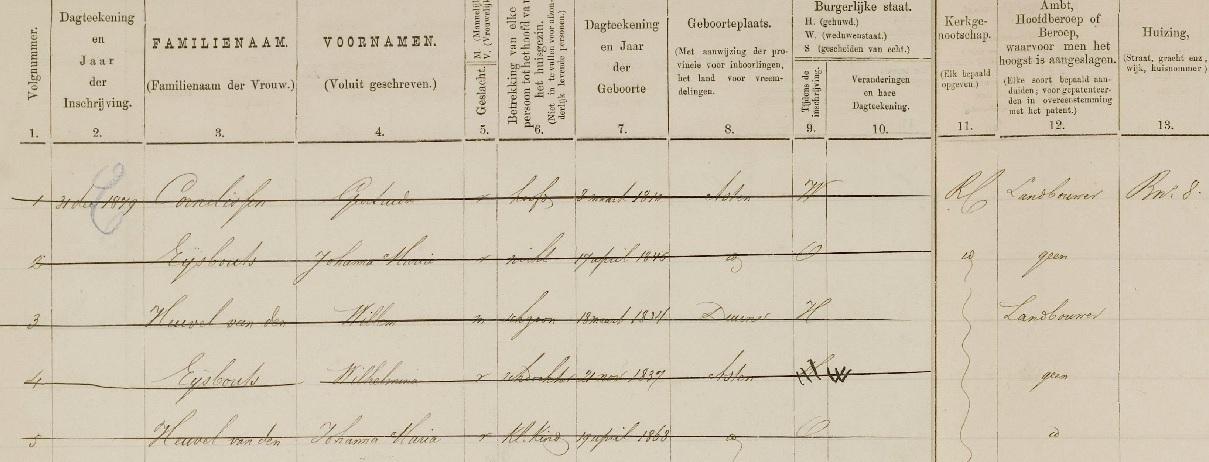 Volgnummer.
1.
Dagteekening
en
Jaar
der
Inschrijving.
2.
FAMILIENAAM.
(Familienaam der Vrouw.)
3.
VOORNAMEN.
(Voluit geschreven.)
4.
Geslacht.
5.
Betrekking van elke
persoon tot het hoofd van
het huisgezin.
(Niet in te vullen voor afzon-
derlijk levende personen.)
6.
Dagteekening
en Jaar
der
Geboorte
7.
Geboorteplaats.
(Met aanwijzing der pro-
vincie voor inboorlingen,
het land voor vreem-
delingen.
8.
Burgerlijke staat.
H. (gehuwd.)
W. (weduwenstaat.)
S (gescheiden van echt.)
Tijdens de
inschrijving.
9.
Veranderingen
en hare
Dagteekening.
10.
Kerkge-
nootschap.
(Elk bepaald
opgeven.)
11.
Ambt,
Hoofdberoep of
Beroep,
waarvoor men het
hoogst is aangeslagen.
(Elke soort bepaald aan-
duiden; voor gepatenteer-
den in overeenstemming
met het patent.)
12.
Huizing,
(Straat, gracht enz.,
wijk, huisnommer)
13.
1 31 dec 1879 Cornelissen Gertruda v hoofd 3 maart Asten W RC Landbouwer 8
2 Eijsbouts Johanna Maria v 17 april O geen
3 Heuvel van den Willem m 18 maart 1834 Deurne H Landbouwer
4 Eijsbouts Wilhelmina v 21 nov 1837 Asten W geen
5 Heuvel van den Johanna Maria v Kl. kind 19 april 1868 O